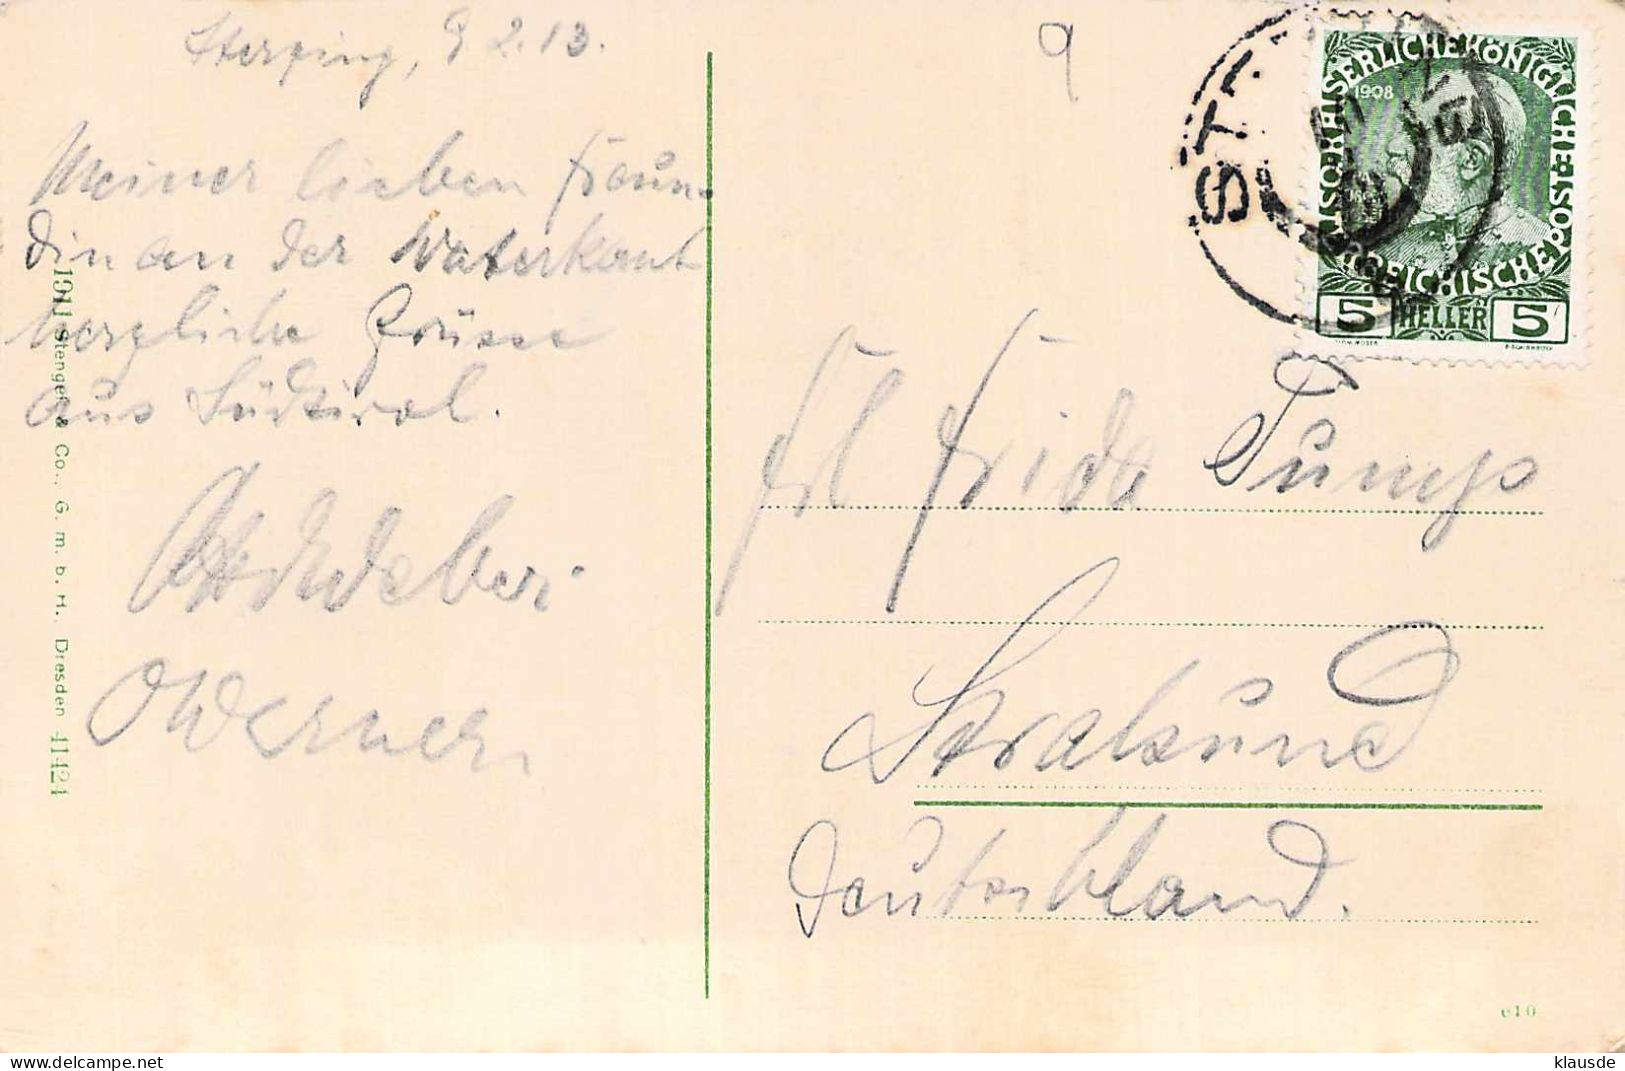 Sterzing, 9 2. 13.
9
Meiner lieben Freun-
din an der Waterkant
herzliche Grüsse
aus Südtirol.
Werner
1911 Stengel & Co., G. m. b. H., Dresden 41424
KAISERLICHE KÖNIGLICHE
ÖSTERREICHISCHE POST
1908
5 HELLER 5
ST
Frl Frida Pumps
Stralsund
Deutschland.
e10
klausde